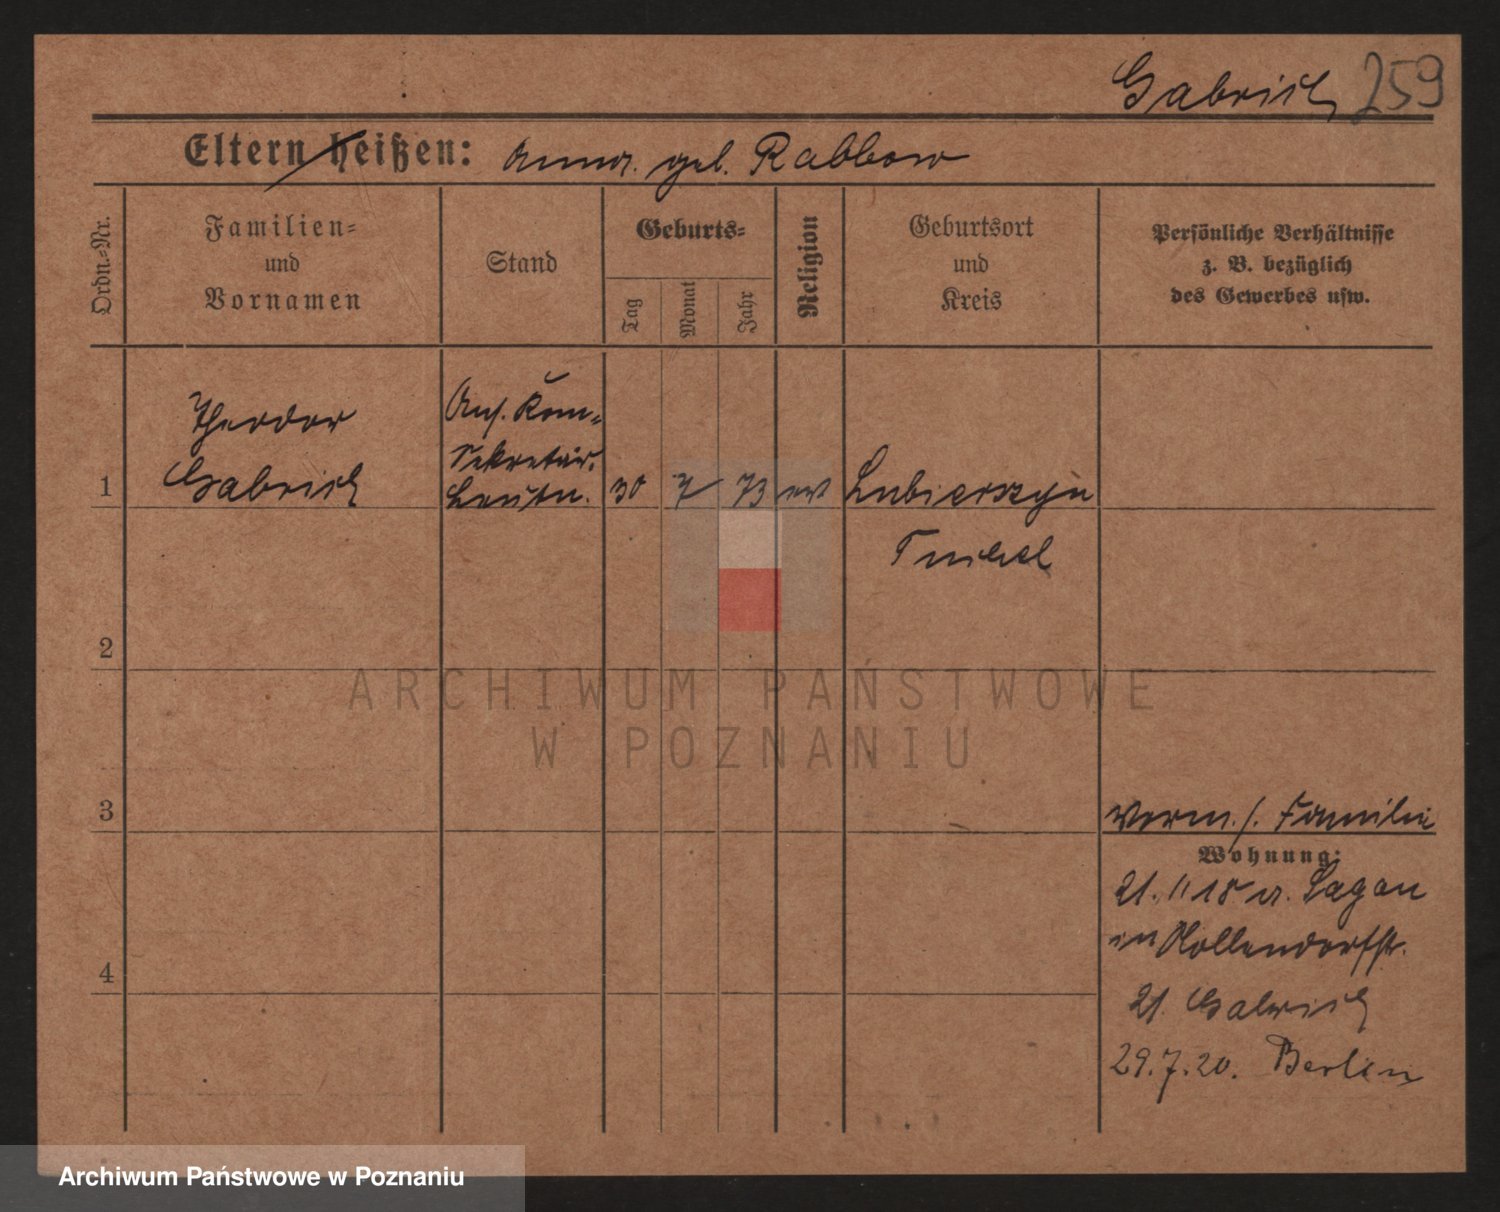 Gabriel 259
Eltern heißen: Anna. geb. Rabbow
Ordn.-Nr.
Familien-
und
Vornamen
Stand
Geburts-
Tag
Monat
Jahr
Religion
Geburtsort
und
Kreis
Persönliche Verhältnisse
z. B. bezüglich
des Gewerbes usw.
1
Theodor
Gabriel
Ans. Kom-
Sekretär.
Leutn.
30 7 73 ev
Lubierszyn
Tuchel
2
ARCHIWUM PAŃSTWOWE
W POZNANIU
3
Verm. s. Familie
Wohnung:
21. 11 18 a. Sagan
in Nollendorfstr.
21. Gabriel
4
29.7.20. Berlin
Archiwum Państwowe w Poznaniu